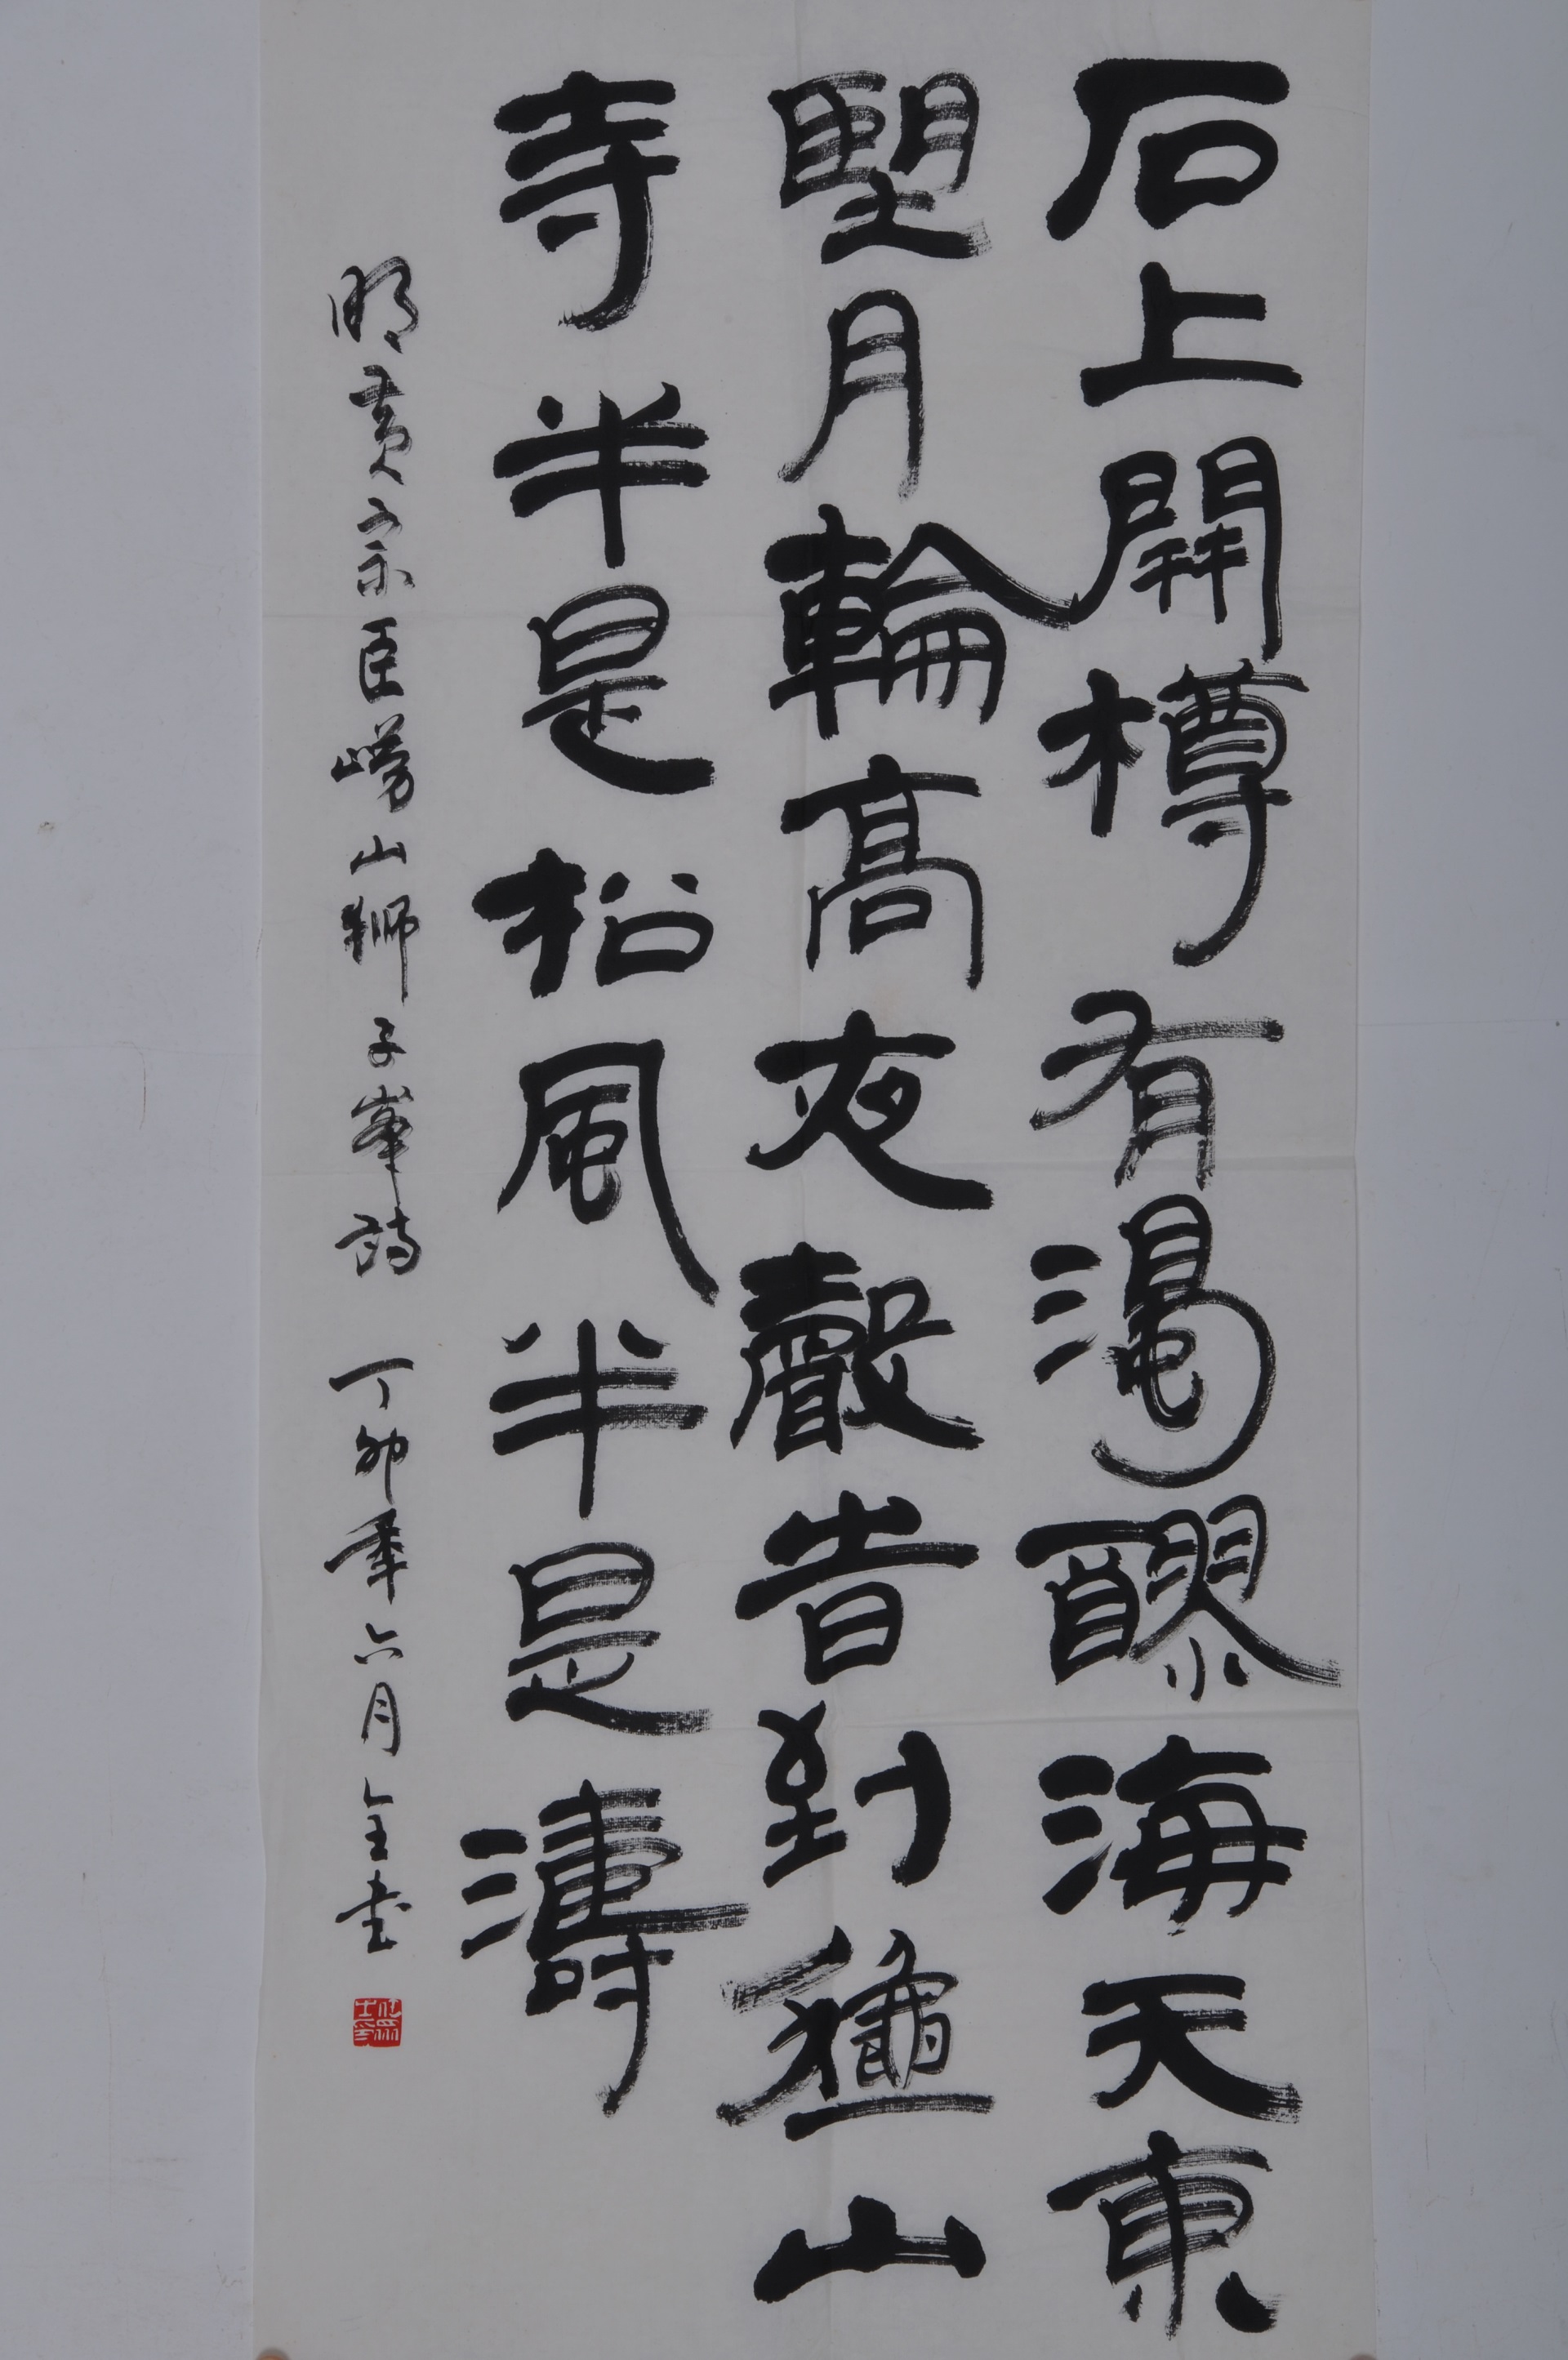 石上開樽有濁醪海天東
望月輪高夜聲昔到猶山
寺半是松風半是濤
明黃宗臣嶗山獅子峯詩 丁卯年六月全書